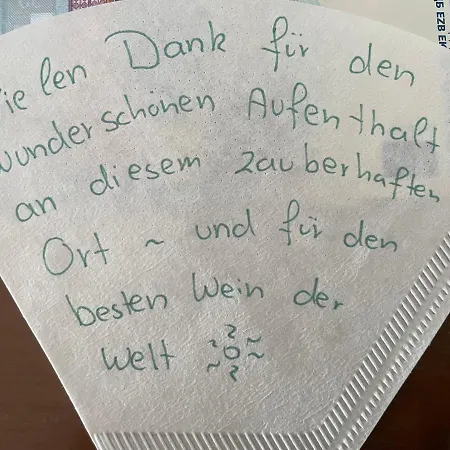 Vielen Dank für den
wunderschönen Aufenthalt
an diesem zauberhaften
Ort ~ und für den
besten Wein der
Welt
EZB EK